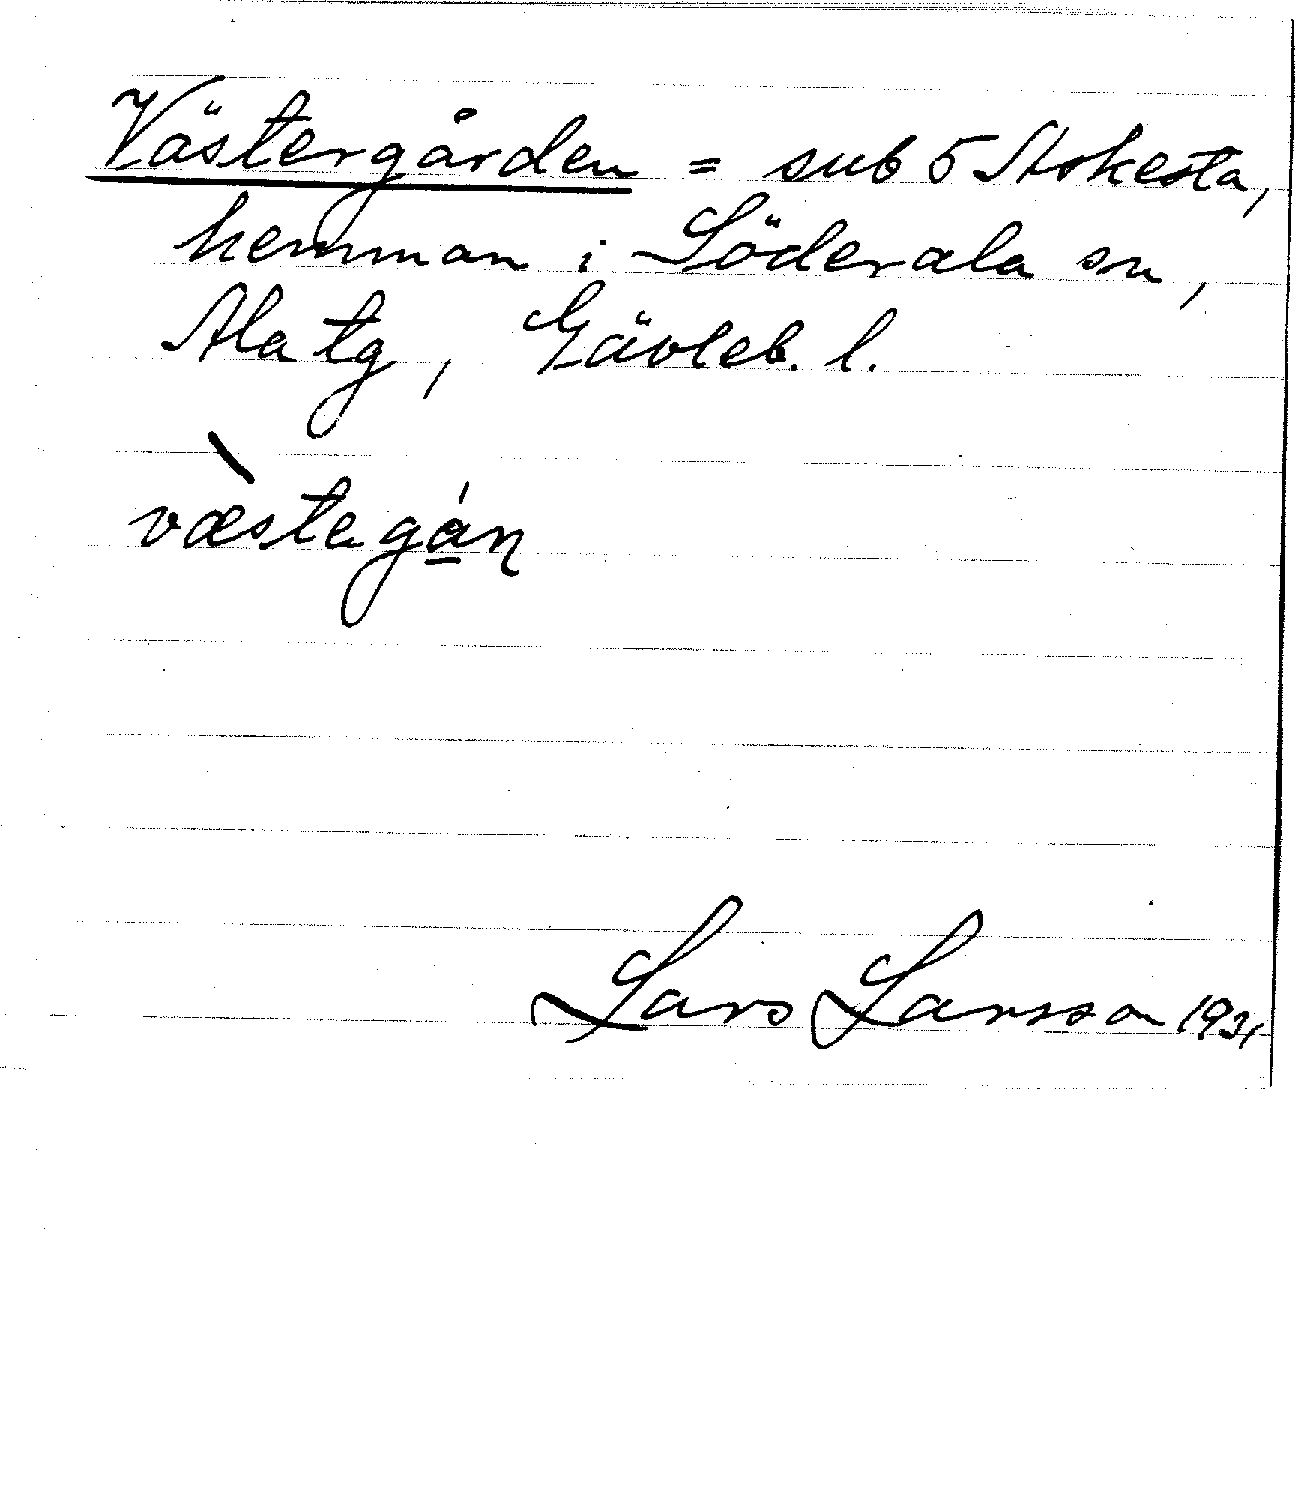 Västergården = sub 5 Askesta,
hemman i Söderala sn,
Ala tg, Gävleb. l.
væ̀stagán
Lars Larsson 1931